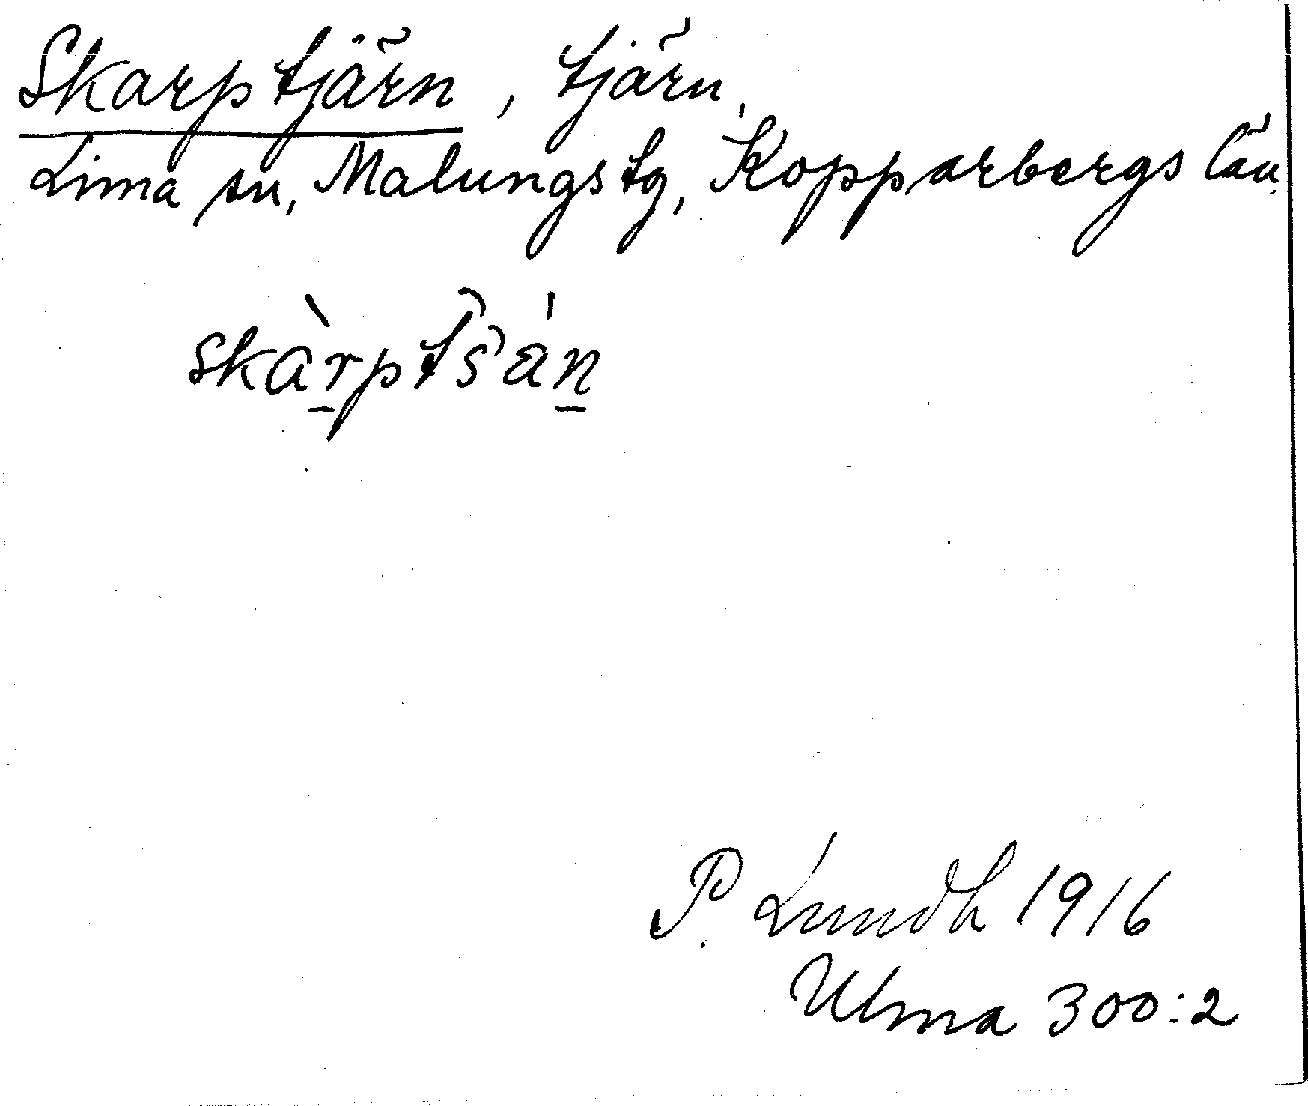 Skarptjärn, tjärn,
Lima sn, Malungs tg, Kopparbergs län.
skàrptsán
P. Lundh 1916
Ulma 300:2